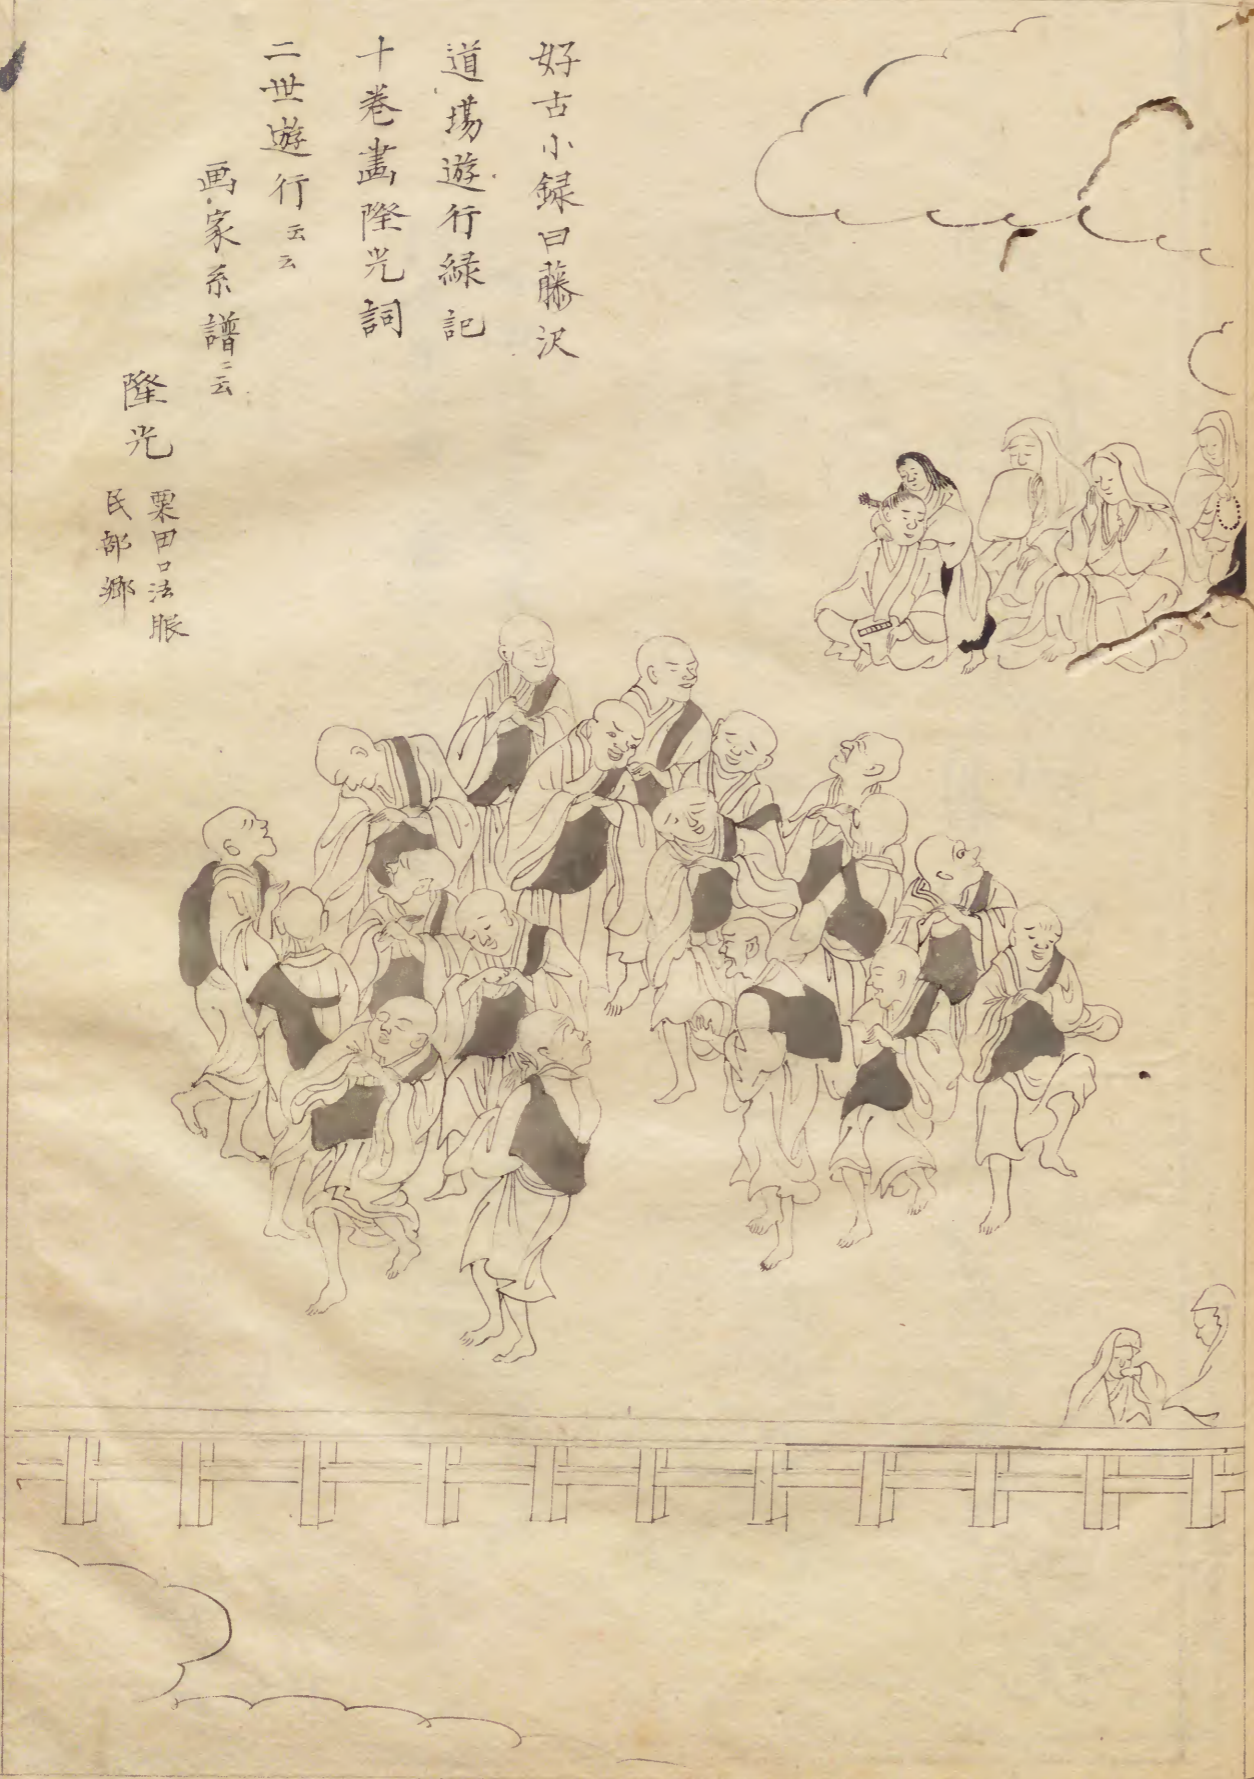 好古小録曰藤沢
道場遊行縁記
十巻畫隆光詞
二世遊行云云
画家系譜ニ云
隆光
粟田口法眼
民部卿